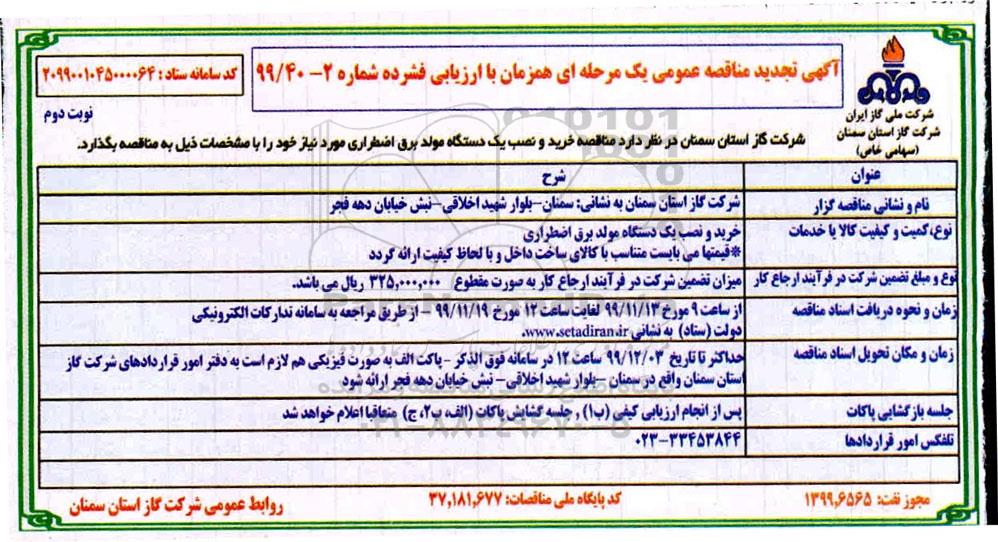 آگهی تجدید مناقصه عمومی یک مرحله ای همزمان با ارزیابی فشرده شماره ۲- ۹۹/۴۰
کد سامانه ستاد : ۲۰۹۹۰۰۱۰۴۵۰۰۰۰۶۴
نوبت دوم
شرکت ملی گاز ایران
شرکت گاز استان سمنان
(سهامی خاص)
شرکت گاز استان سمنان در نظر دارد مناقصه خرید و نصب یک دستگاه مولد برق اضطراری مورد نیاز خود را با مشخصات ذیل به مناقصه بگذارد.
عنوان شرح
نام و نشانی مناقصه گزار شرکت گاز استان سمنان به نشانی: سمنان-بلوار شهید اخلاقی-نبش خیابان دهه فجر
نوع، کمیت و کیفیت کالا یا خدمات خرید و نصب یک دستگاه مولد برق اضطراری
*قیمتها می بایست متناسب با کالای ساخت داخل و با لحاظ کیفیت ارائه گردد
نوع و مبلغ تضمین شرکت در فرآیند ارجاع کار میزان تضمین شرکت در فرآیند ارجاع کار به صورت مقطوع/ ۳۲۵,۰۰۰,۰۰۰ ریال می باشد.
زمان و نحوه دریافت اسناد مناقصه از ساعت ۹ مورخ ۹۹/۱۱/۱۳ لغایت ساعت ۱۲ مورخ ۹۹/۱۱/۱۹ - از طریق مراجعه به سامانه تدارکات الکترونیکی
دولت (ستاد) به نشانی www.setadiran.ir.
زمان و مکان تحویل اسناد مناقصه حداکثر تا تاریخ ۹۹/۱۲/۰۳ ساعت ۱۲ در سامانه فوق الذکر - پاکت الف به صورت فیزیکی هم لازم است به دفتر امور قراردادهای شرکت گاز
استان سمنان واقع در سمنان -بلوار شهید اخلاقی- نبش خیابان دهه فجر ارائه شود
جلسه بازگشایی پاکات پس از انجام ارزیابی کیفی (ب۱) , جلسه گشایش پاکات (الف، ب۲، ج) متعاقبا اعلام خواهد شد
تلفکس امور قراردادها ۰۲۳-۳۳۴۵۳۸۴۴
مجوز نفت: ۱۳۹۹,۶۵۶۵ کد پایگاه ملی مناقصات: ۳۷,۱۸۱,۶۷۷ روابط عمومی شرکت گاز استان سمنان